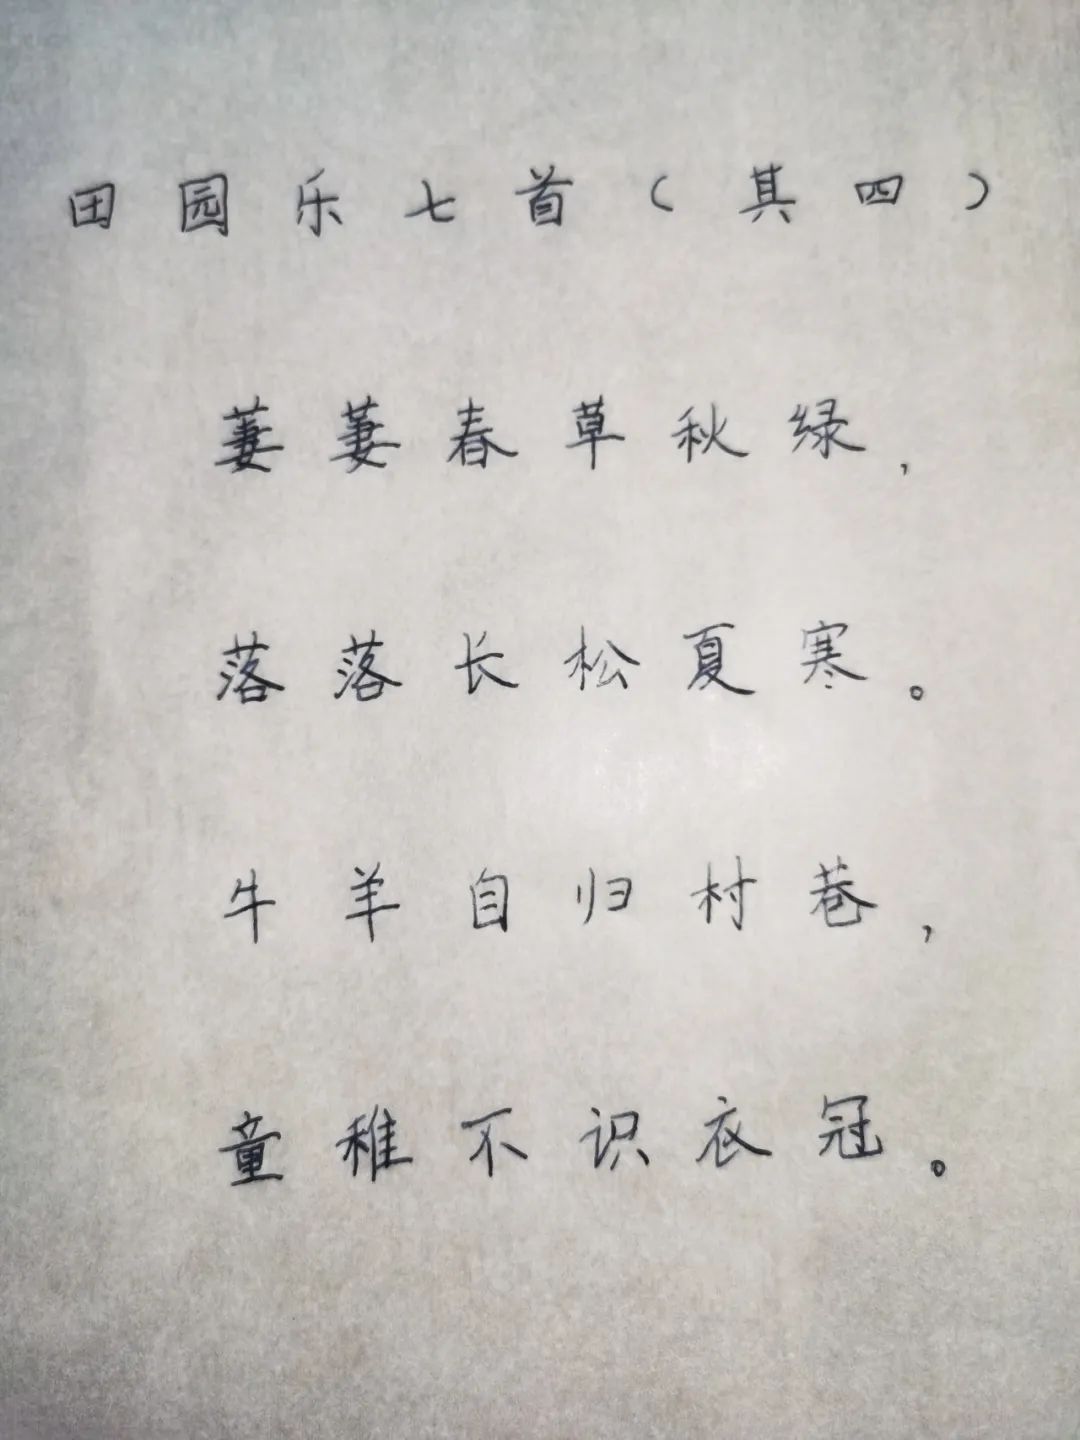 田园乐七首(其四)
萋萋春草秋绿,
落落长松夏寒。
牛羊自归村巷,
童稚不识衣冠。